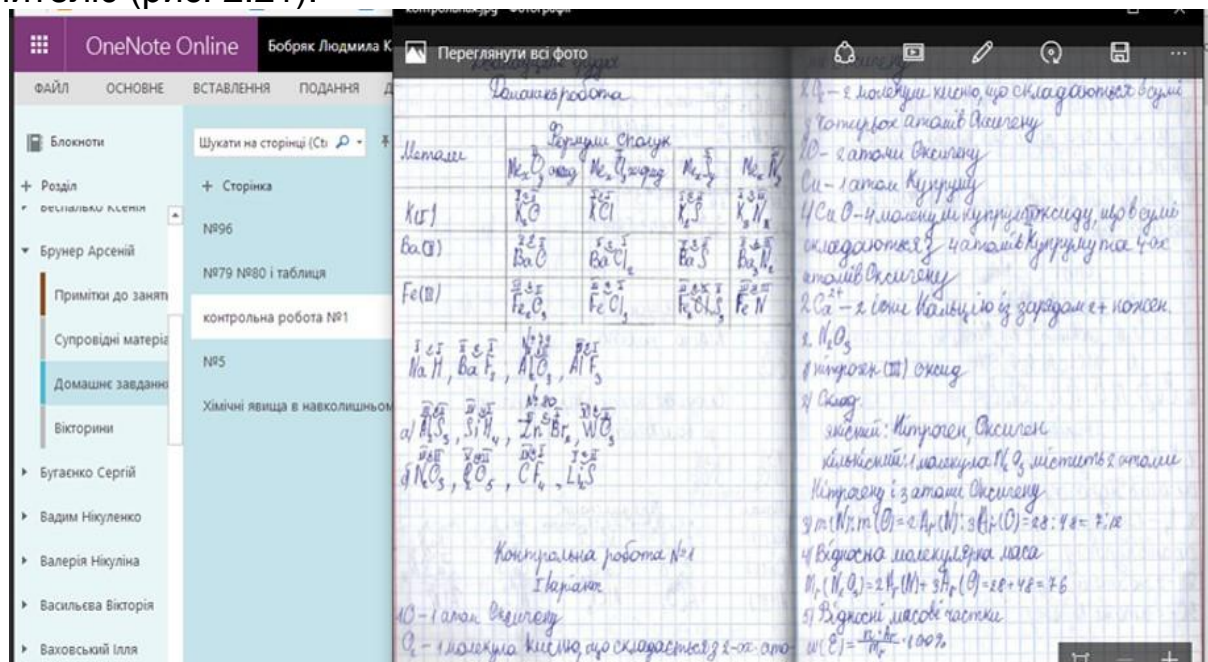 (рис. 2.21).
OneNote Online
Бобряк Людмила К
ФАЙЛ ОСНОВНЕ ВСТАВЛЕННЯ ПОДАННЯ
Блокноти
+ Розділ
Беспалько Ксенія
Брунер Арсеній
Примітки до занять
Супровідні матеріа
Домашнє завдання
Вікторини
Бугаєнко Сергій
Вадим Нікуленко
Валерія Нікуліна
Васильєва Вікторія
Ваховський Ілля
Шукати на сторінці (Ct
+ Сторінка
№96
№79 №80 і таблиця
контрольна робота №1
№5
Хімічні явища в навколишньом
контрольная.jpg - Фотографії
Переглянути всі фото
Домашня робота
Метали
Формули сполук
K(I)
Ba(II)
BaO BaCl₂ BaS Ba₃N₂
Fe(III)
№79
NaH, BaF₂, Al₂O₃, AlF₃
№80
а) Al₂S₃, SiH₄, ZnBr₂, WO₃
б) N₂O₃, CF₄, Li₂S
Контрольна робота №1
I Варіант
1O – 1 атом Оксигену
O₂ – 1 молекула кисню, що складається з 2-ох ато
2O₂ – 2 молекули кисню, що складаються в сумі
з чотирьох атомів Оксигену
2O – 2 атоми Оксигену
Cu – 1 атом Купруму
4CuO – 4 молекули купрум оксиду, що в сумі
складаються з 4 атомів Купруму та 4-ох
атомів Оксигену
2Ca²⁺ – 2 іони Кальцію із зарядом 2+ кожен.
2. N₂O₃
1) нітроген (III) оксид
2) Склад
якісний: Нітроген, Оксиген
кількісний: 1 молекула N₂O₃ містить 2 атоми
Нітрогену і 3 атоми Оксигену
3) m(N):m(O)=2Ar(N):3Ar(O)=28:48=7:12
4) Відносна молекулярна маса
Mr(N₂O₃)=2Ar(N)+3Ar(O)=28+48=76
5) Відносні масові частки
w(E)=n·Ar/Mr·100%